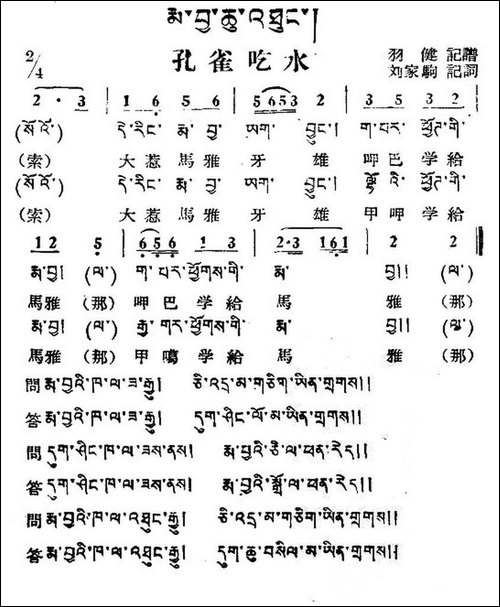 རྨ་བྱ་ཆུ་འཐུང་།
孔雀吃水
2/4
羽健 記譜
刘家駒 記詞
2 · 3 | 1 6 5 6 | 5 6 5 3 2 | 3 5 3 2 |
(སོ་འོ་) དེ་རིང་ རྨ་ བྱ་ ཡག་ བྱུང་། ག་པར་ ཕྱོག་གི་
(索) 大惹馬雅牙 雄 呷巴学給
(སོ་འོ་) དེ་རིང་ རྨ་ བྱ་ ཡག་ བྱུང་། ཕྱོག་གི་
(索) 大惹馬雅牙 雄 甲呷学給
1 2 5 | 6 5 6 1 3 | 2 · 3 1 6 1 | 2 2
རྨ་བྱ། (ལ་) ག་པར་ཕྱོགས་གི་ རྨ་ བྱ།། (ལ་)
馬雅 (那) 呷巴学給 馬 雅 (那)
རྨ་བྱ། (ལ་) རྒྱ་གར་ཕྱོགས་གི་ རྨ་ བྱ།། (ལ་)
馬雅 (那) 甲噶学給 馬 雅 (那)
問 རྨ་བྱའི་ཁ་ལ་ཟ་རྒྱུ། ཅི་འདྲ་མ་གཅིག་ཡིན་གྲགས།།
答 རྨ་བྱའི་ཁ་ལ་ཟ་རྒྱུ། དུག་ཤིང་ལོ་མ་ཡིན་གྲགས།།
問 དུག་ཤིང་ཁ་ལ་ཟས་ནས། རྨ་བྱའི་ཅི་ལ་ཕན་རེད།།
答 དུག་ཤིང་ཁ་ལ་ཟས་ནས། རྨ་བྱའི་སྒྲོ་ལ་ཕན་རེད།།
問 རྨ་བྱའི་ཁ་ལ་འཐུང་རྒྱུ། ཅི་འདྲ་མ་གཅིག་ཡིན་གྲགས།།
答 རྨ་བྱའི་ཁ་ལ་འཐུང་རྒྱུ། དུག་ཆུ་བསིལ་མ་ཡིན་གྲགས།།